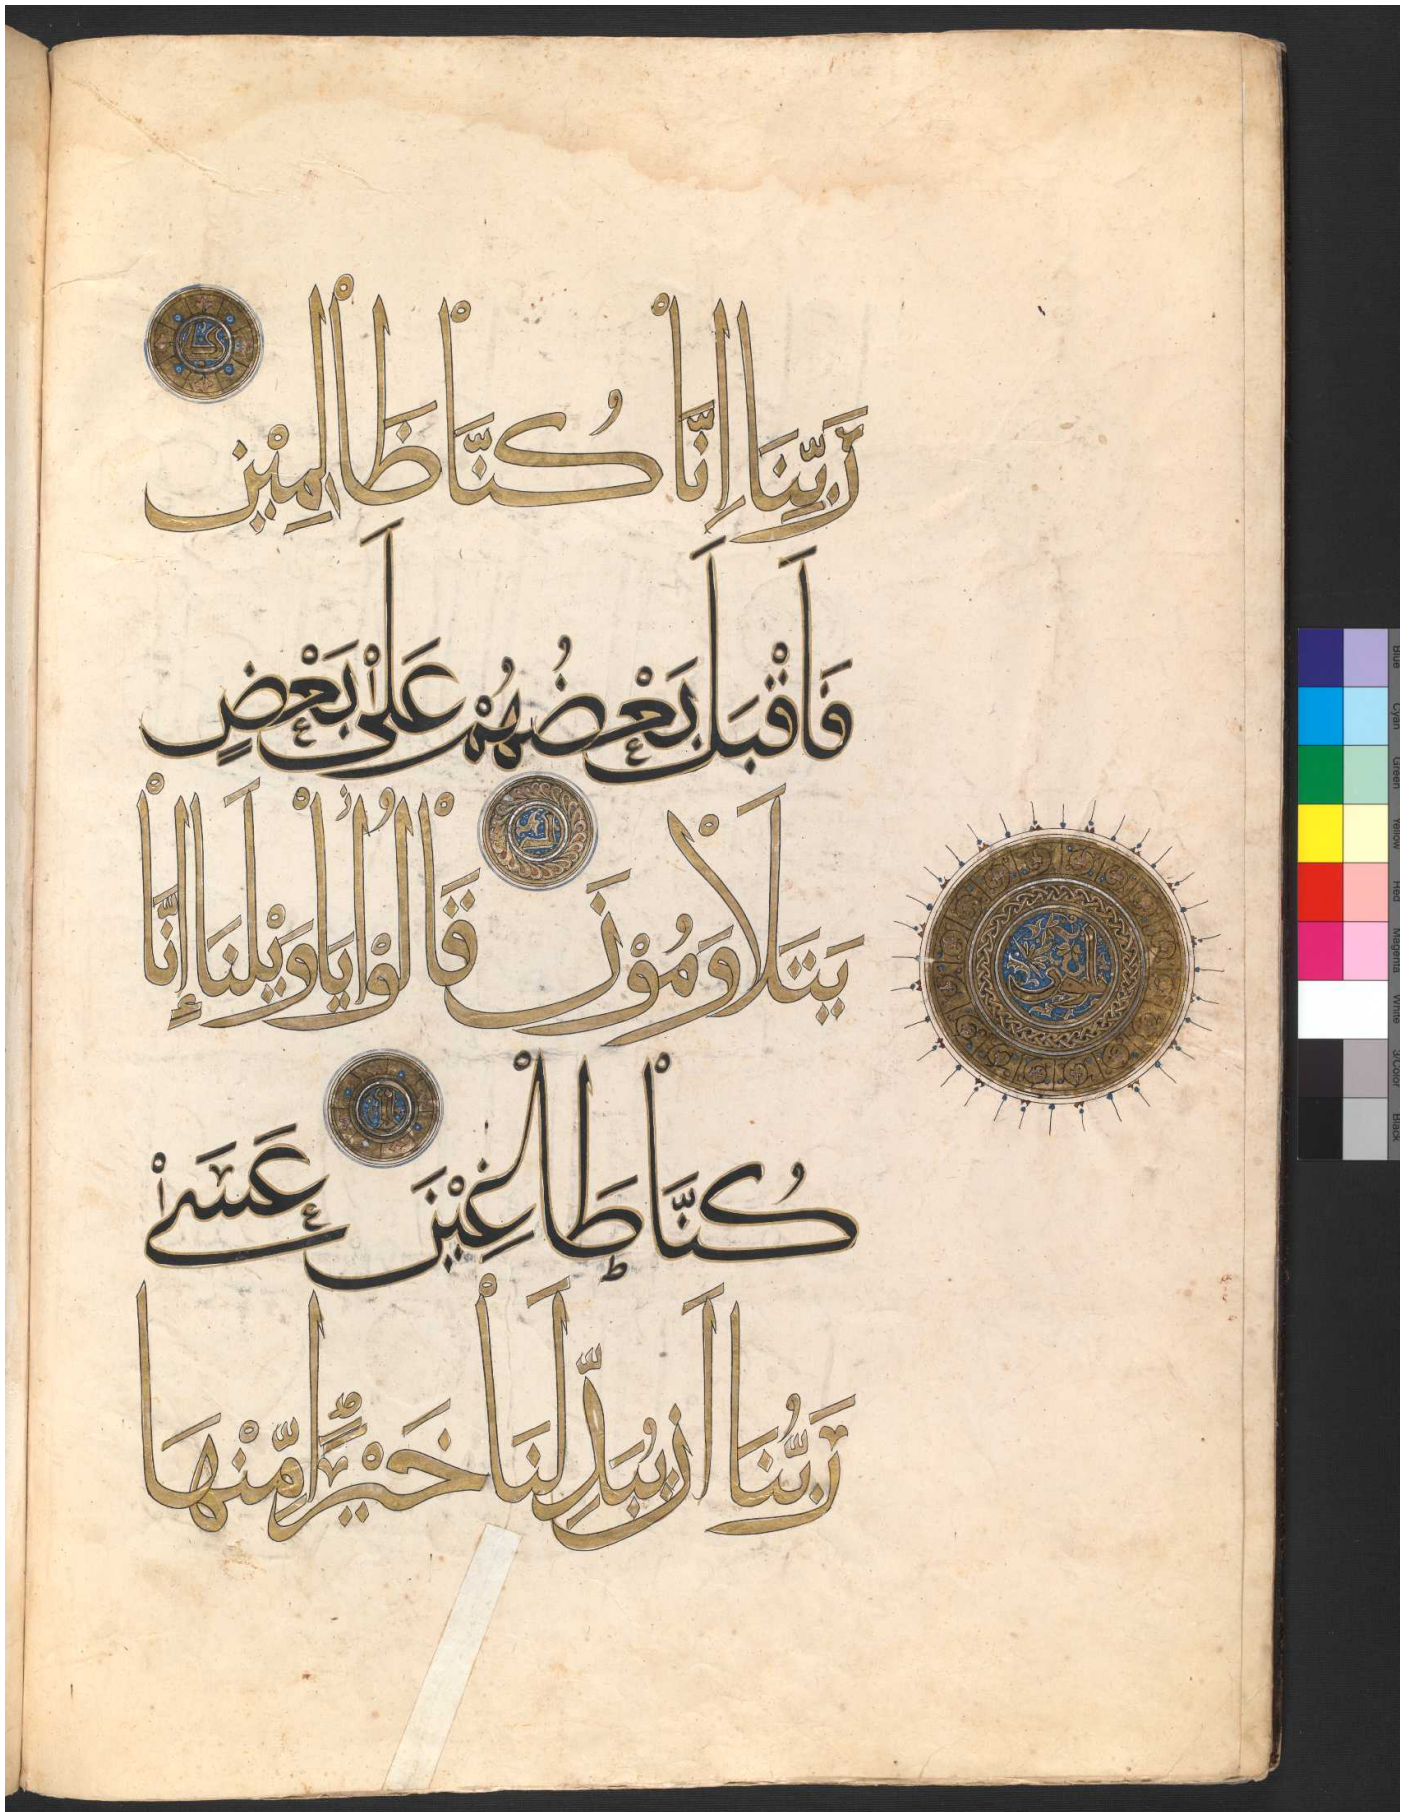 رَبِّنَا اِنَّا كُنَّا ظَالِمِيْنَ
فَاَقْبَلَ بَعْضُهُمْ عَلَى بَعْضٍ
يَتَلَاوَمُوْنَ قَالُوْا يَاوَيْلَنَا إِنَّا
كُنَّا طَاغِيْنَ عَسَى
رَبُّنَا اَنْ يُبَدِّلَنَا خَيْرًا مِّنْهَا
Blue
Cyan
Green
Yellow
Red
Magenta
White
3/Color
Black